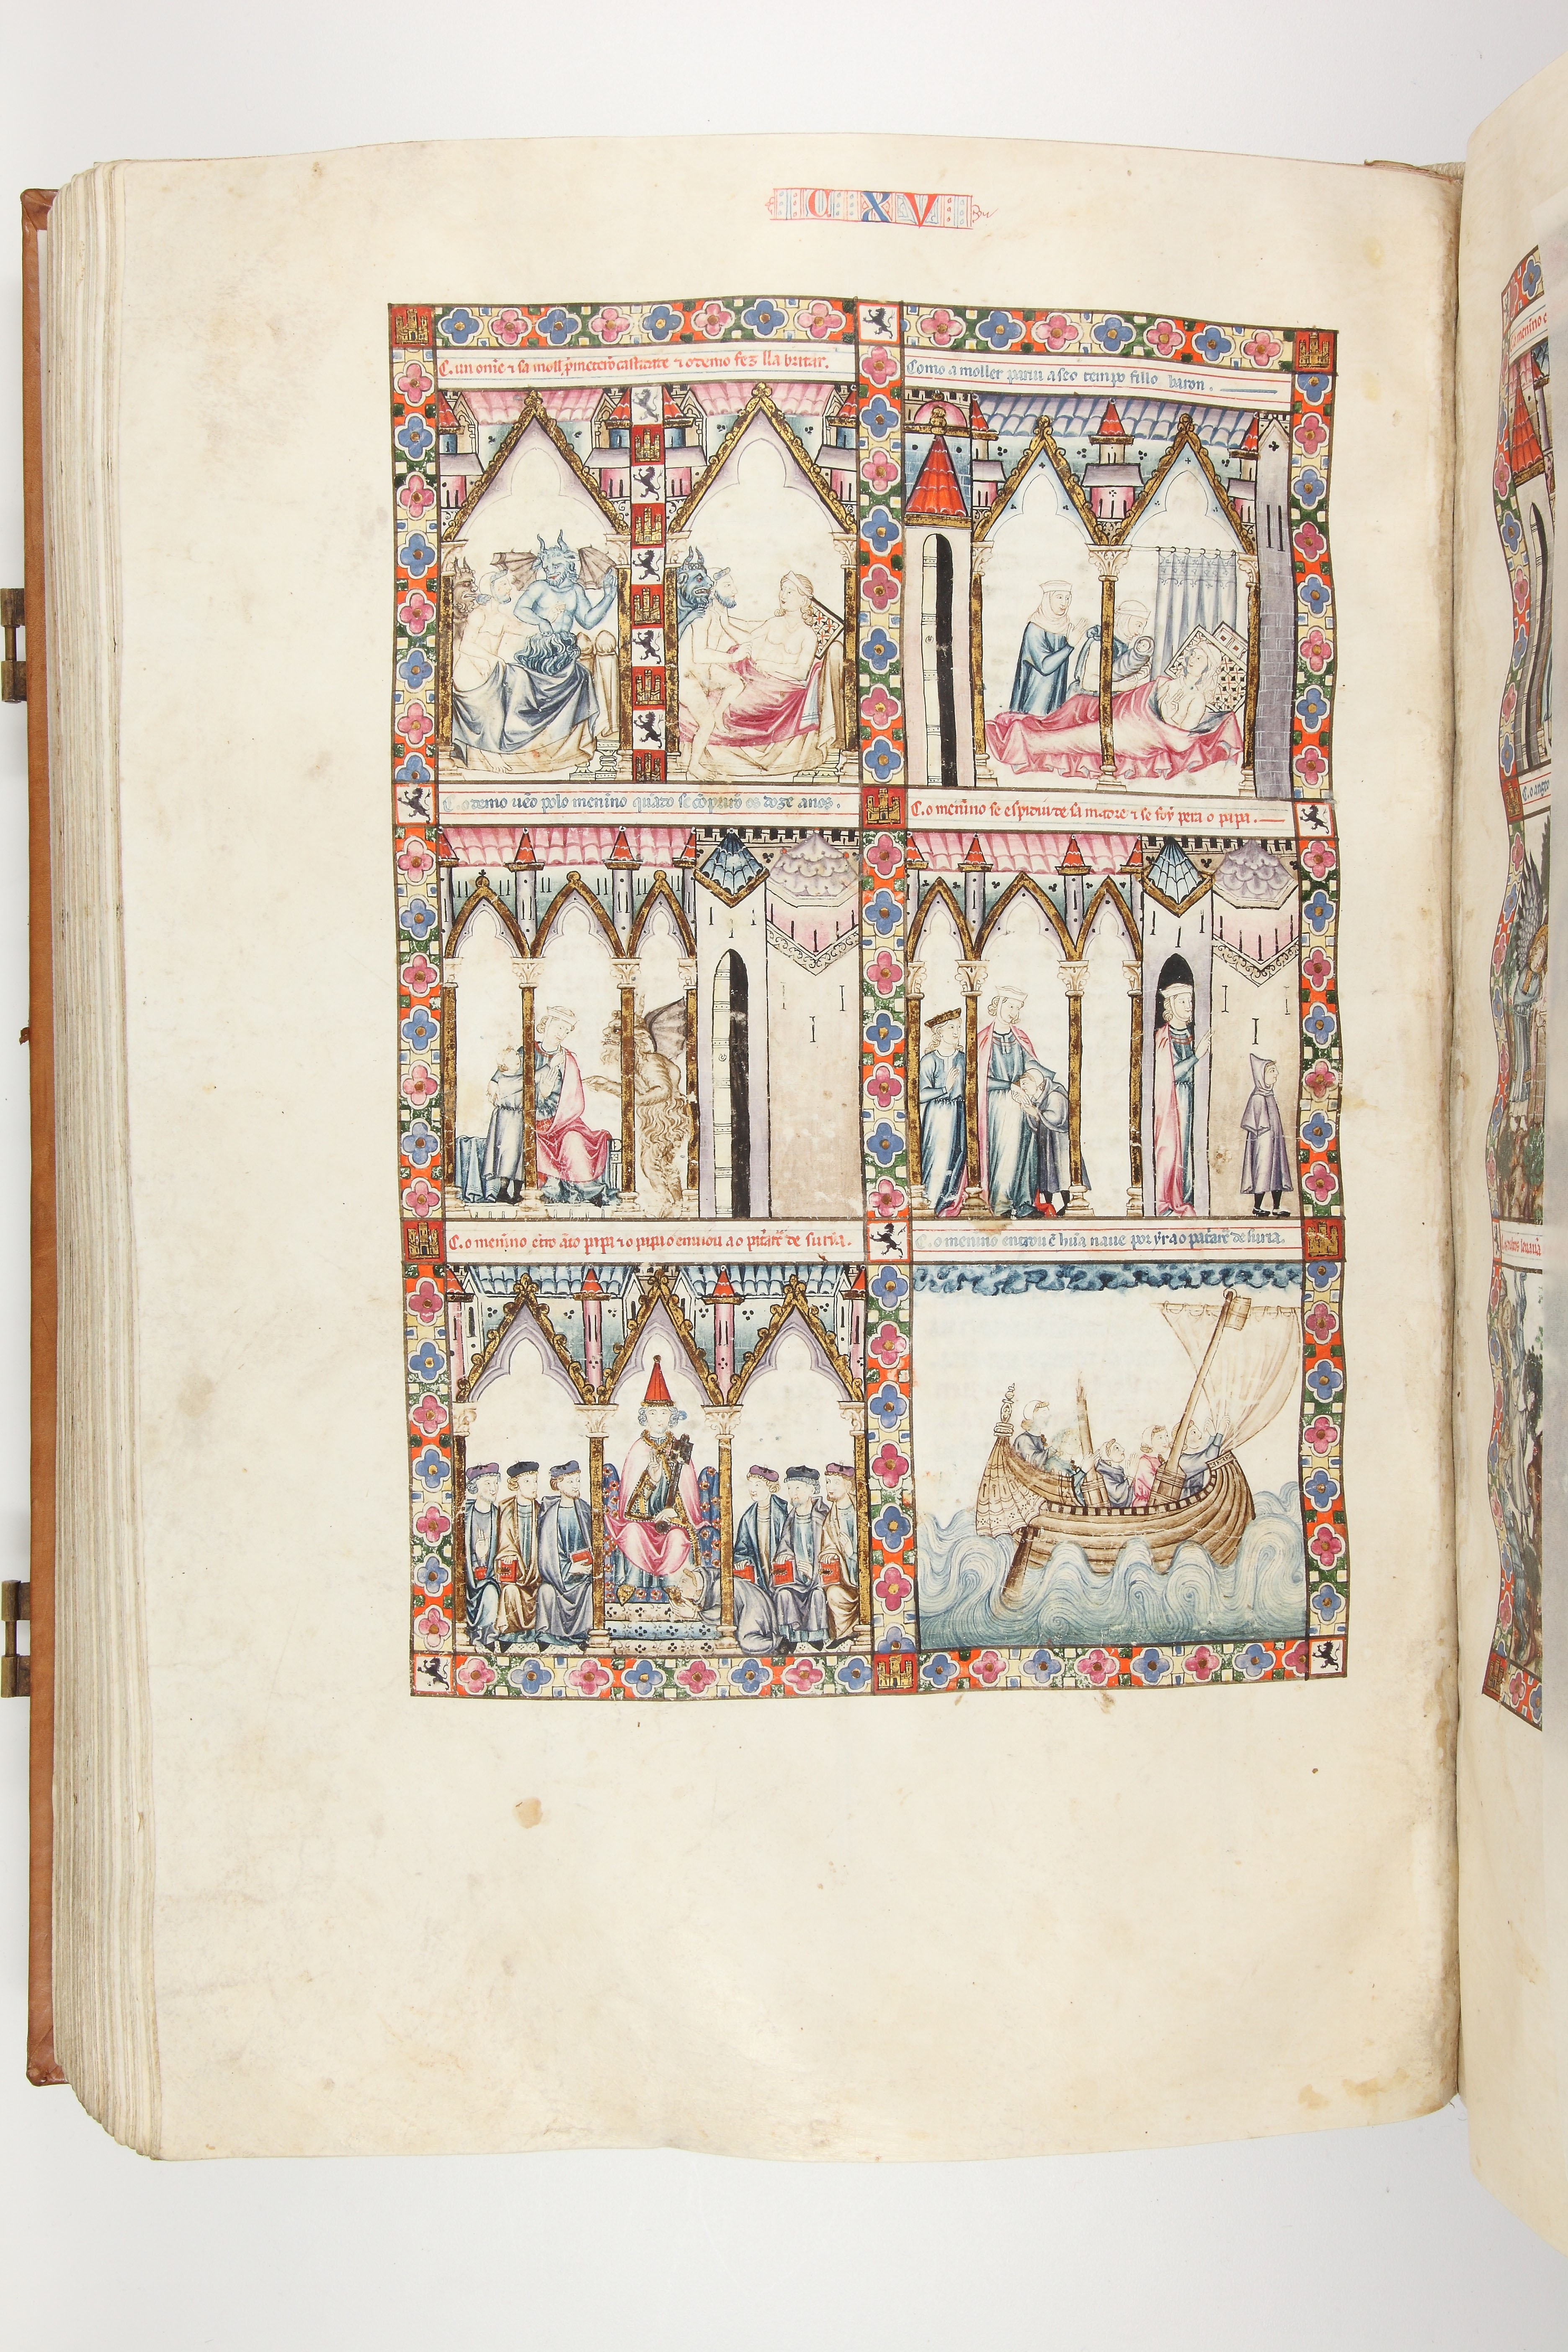 CXV
C. un om̃e ⁊ sa moll̃ p̃meterõ castidade ⁊ o demo fez lla britar.
Como a moller pariu a seo tempo fillo baron.
C. o demo uẽo polo menỹno quãdo se cõprirõ os doze anos.
C. o menỹno se espidiu de sa madre ⁊ se foy pera o papa.
C. o menỹno ẽtro ãto papa ⁊ o papa o enuiou a o patarc̃ de suria.
C. o menỹno entrou ẽ hũa naue por yr a o patarc̃ de suria.